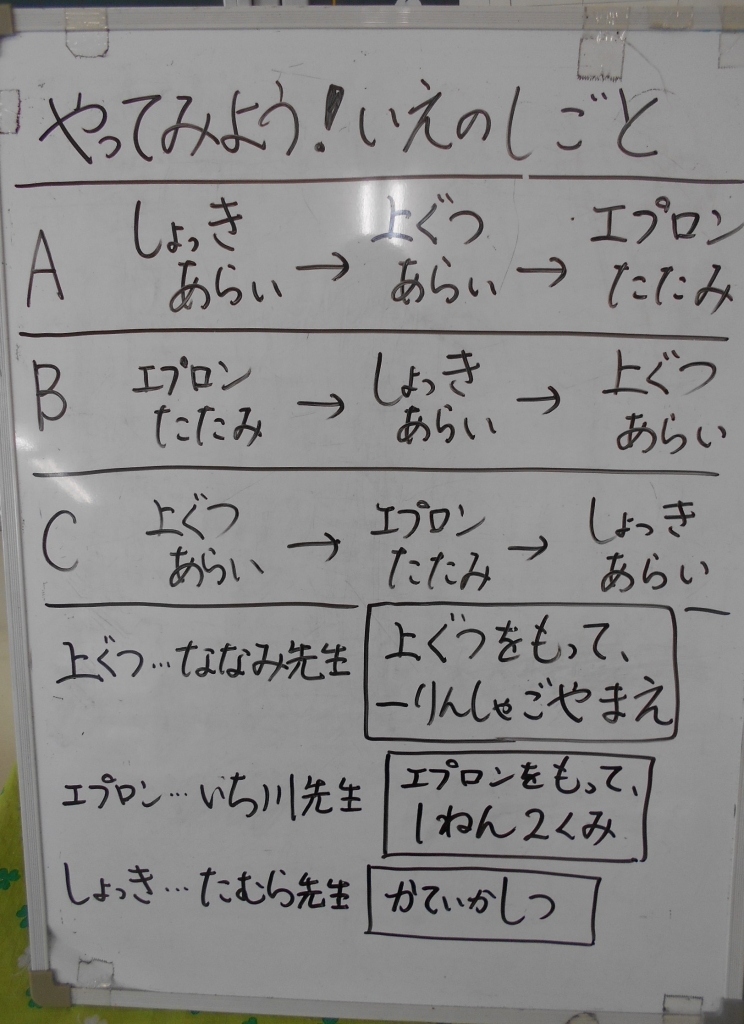 やってみよう!いえのしごと
A しょっき あらい → 上ぐつ あらい → エプロン たたみ
B エプロン たたみ → しょっき あらい → 上ぐつ あらい
C 上ぐつ あらい → エプロン たたみ → しょっき あらい
上ぐつ…ななみ先生
上ぐつをもって、
一りんしゃごやまえ
エプロン…いち川先生
エプロンをもって、
1ねん2くみ
しょっき…たむら先生
かていかしつ